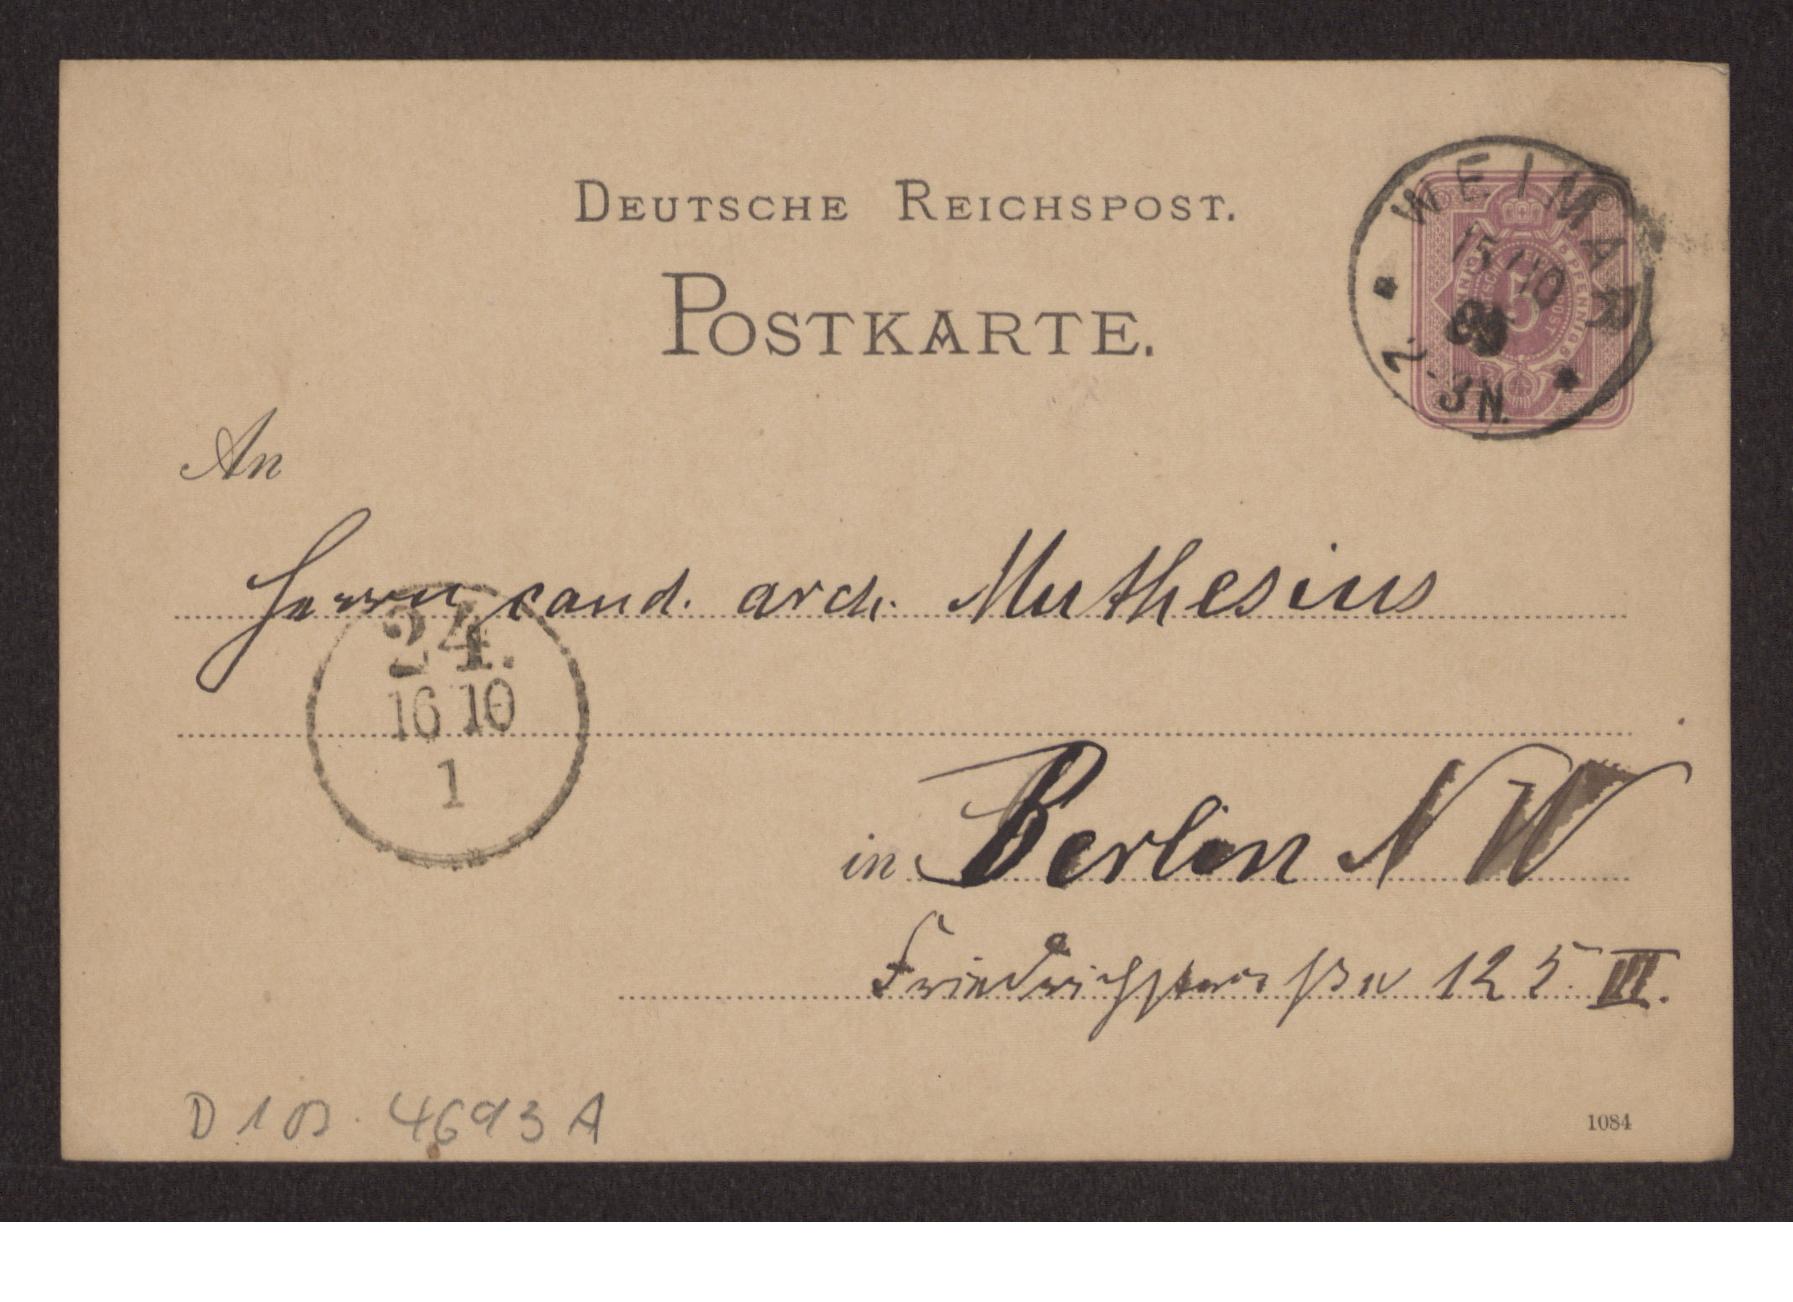 DEUTSCHE REICHSPOST.
POSTKARTE.
WEIMAR
15 10
2-3N.
5
An
Herrn cand. arch. Muthesius
24.
16 10
1
in Berlin NW
Friedrichstraße 125 III.
4693 A
1084